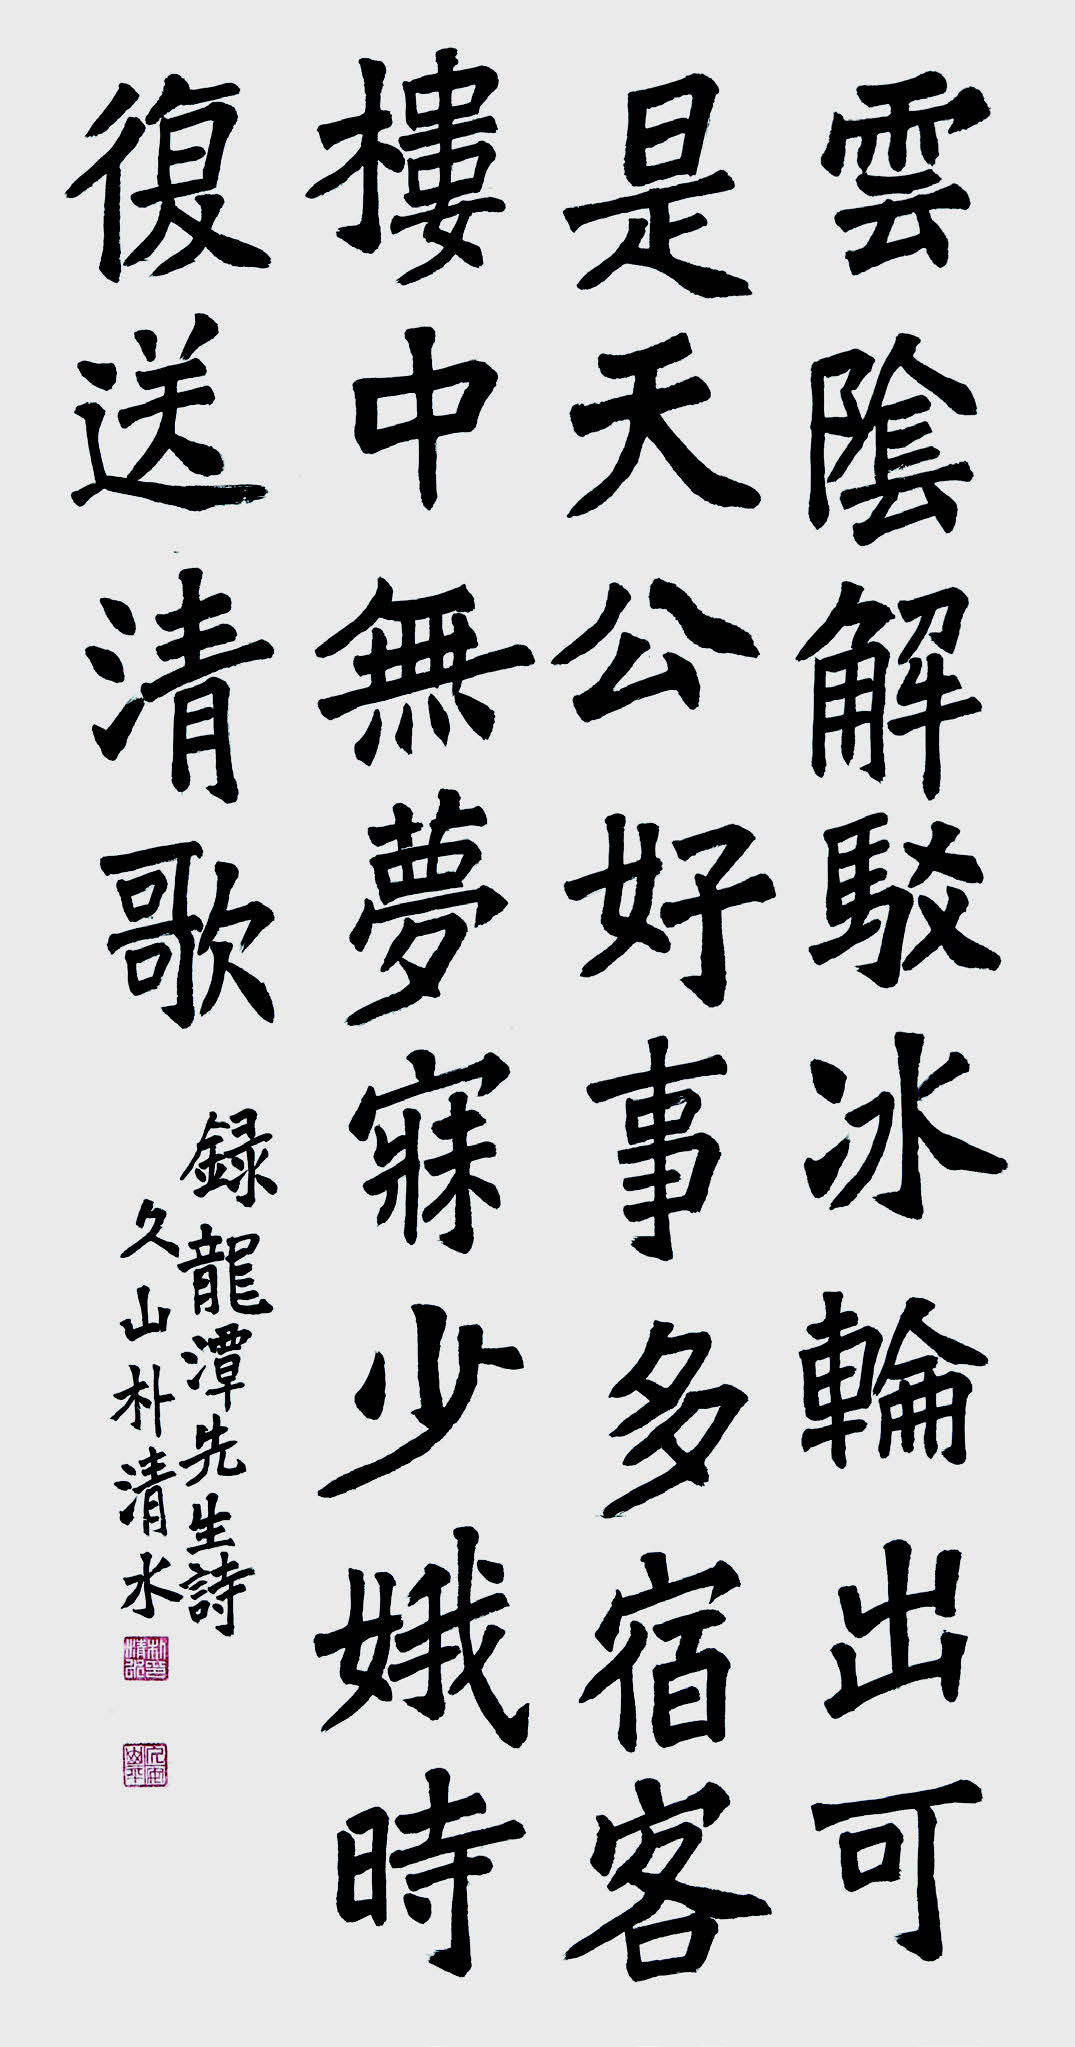 雲陰解駁冰輪出可
是天公好事多宿客
樓中無夢寐少娥時
復送清歌
録龍潭先生詩
久山朴清水